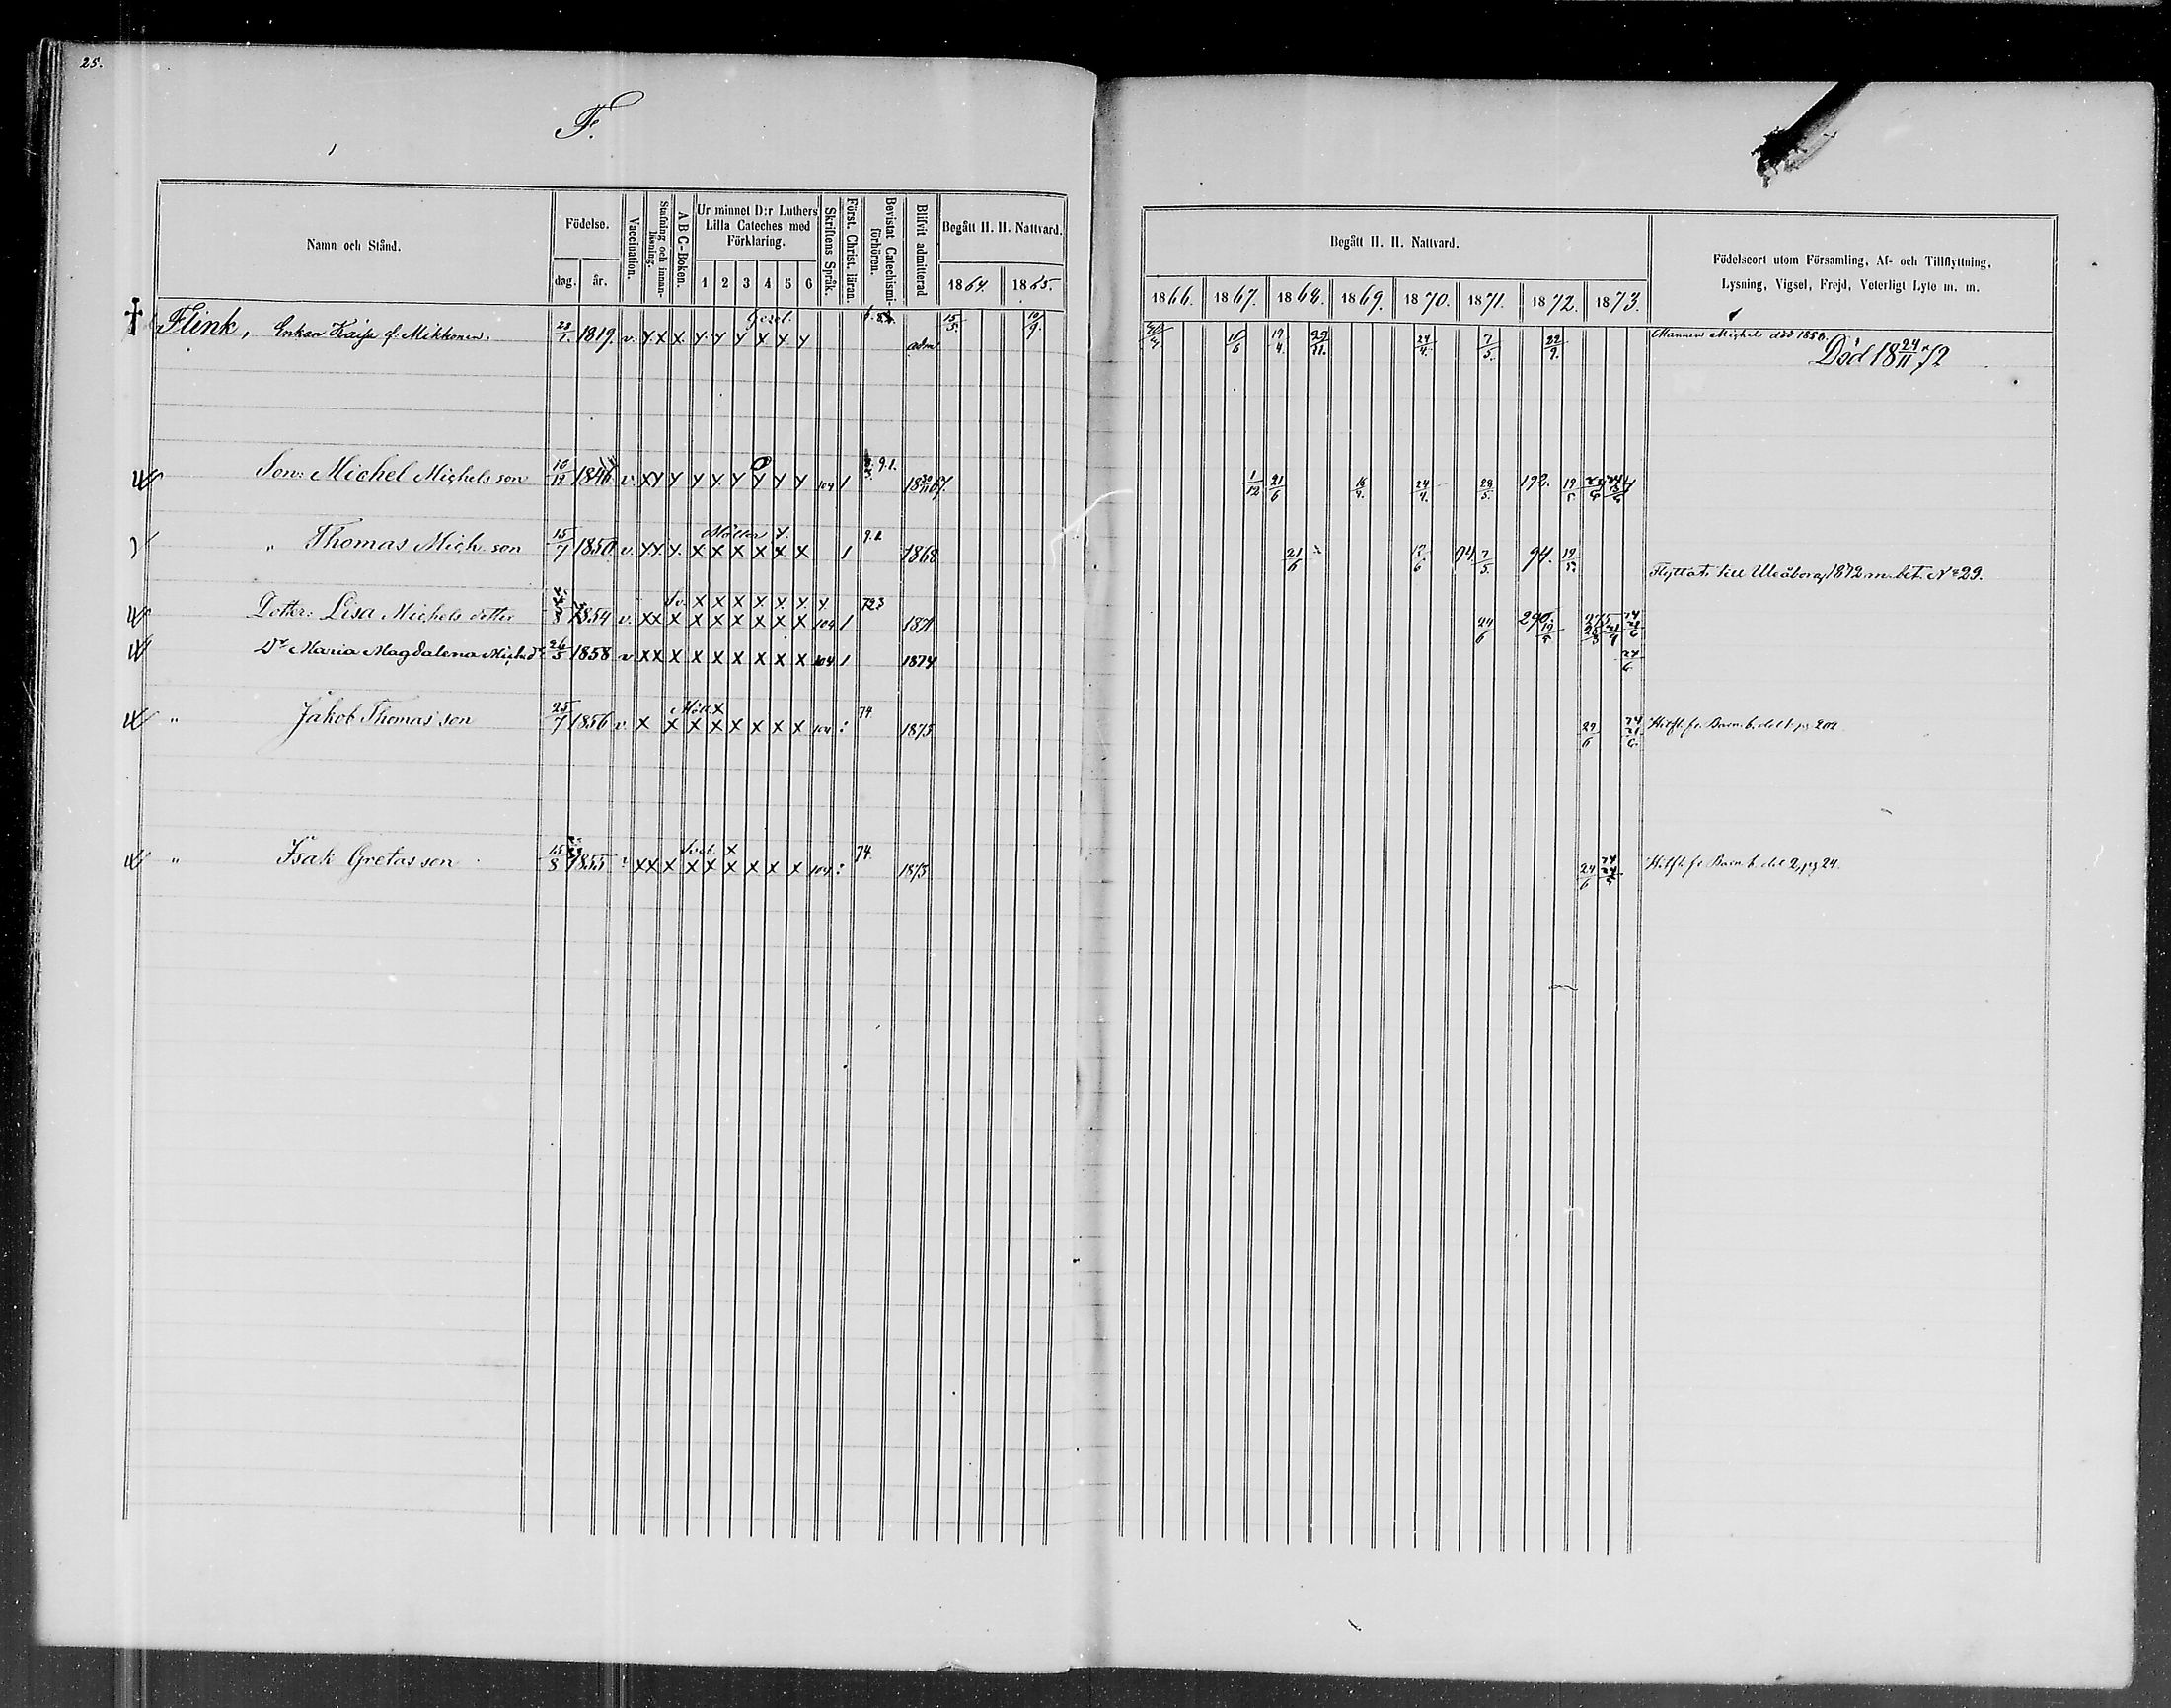 25.
F.
Namn och Stånd.
Födelse.
dag. år.
Vaccination.
Stafning och innanläsning.
A B C-Boken.
Ur minnet D:r Luthers Lilla Cateches med Förklaring.
1 2 3 4 5 6
Skriftens Språk.
Först. Christ. läran.
Bevistat Catechismiförhören.
Blifvit admitterad
Begått H. H. Nattvard.
1864. 1865.
Begått H. H. Nattvard.
1866. 1867. 1868. 1869. 1870. 1871. 1872. 1873.
Födelseort utom Församling, Af- och Tillflyttning,
Lysning, Vigsel, Frejd, Veterligt Lyte m. m.
Flink, Enkan Kaisa f. Mikkonen. 1819. v. Y X X. Y Y Y X Y Y adm 15/5. 10/9. 15/6 19/4. 24/4. 7/5. 22/9. Mannen Michel död 1858.
Död 18 24/11 72
Son: Michel Michels son 10/12 1846 v. X Y Y Y Y Y Y Y Y 104 1 1/12 21/6 24/4. 192. 19/5
" Thomas Mich. son 15/7 1850 v. Y. Y. Y. X X X X X X 1 1868 21/6 94 7/5. 94. 19/5.
Flyttat till Uleåborg 1872 m. bet. No 29.
Dotter: Lisa Michels dotter 1854 v. X X X X X X X X X 104 1 1871 24/6
Dr Maria Magdalena Mich. dr 26/5 1858 v X X X X X X X X X 104 1 1874 24/6
" Jakob Thomas son 25/7 1856 v. X X X X X X X X 104 : 74. 1873 Hitfl. fr. Barn. b. del 1. pg 202
" Isak Gretas son 15/8 1855 X X X X X X X X X 104 : 74. 1873 24/6 Hitfl. fr. Barn. b. del 2, pg 24.